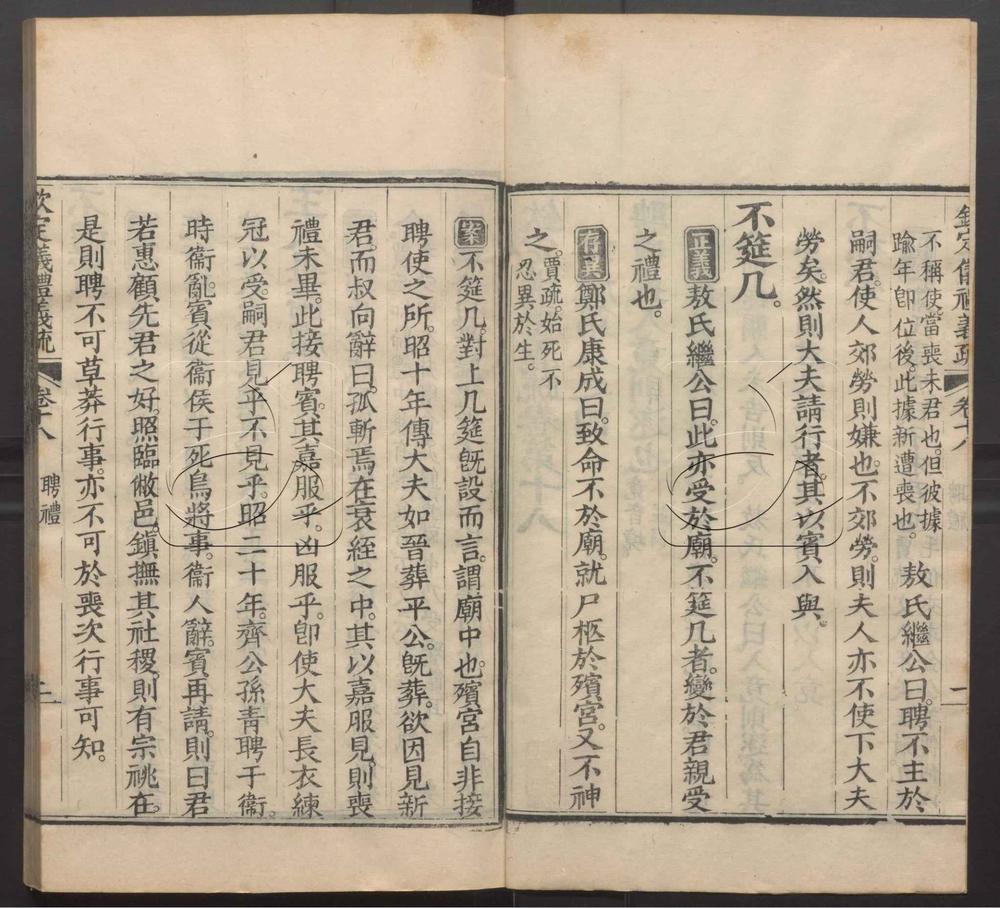 欽定儀禮義疏 卷十八
不稱使當喪未君也但彼據
踰年卽位後此據新遭喪也。敖氏繼公曰聘不主於
嗣君使人郊勞則嫌也不郊勞則夫人亦不使下大夫
勞矣然則大夫請行者其以賓入與。
不筵几。
正義敖氏繼公曰此亦受於廟不筵几者變於君親受
之禮也。
存異鄭氏康成曰致命不於廟就尸柩於殯宮又不神
之。賈疏始死不
忍異於生。
案不筵几對上几筵旣設而言謂廟中也殯宮自非接
聘使之所昭十年傳大夫如晉葬平公旣葬欲因見新
君而叔向辭曰孤斬焉在衰絰之中其以嘉服見則喪
禮未畢此接聘賓其嘉服乎凶服乎卽使大夫長衣練
冠以受嗣君見乎不見乎昭二十年齊公孫青聘于衛。
時衞亂賓從衞侯于死鳥將事衞人辭賓再請則曰君
若惠顧先君之好照臨敝邑鎭撫其社稷則有宗祧在。
是則聘不可草莽行事亦不可於喪次行事可知。
欽定儀禮義疏 卷十八 聘禮 二